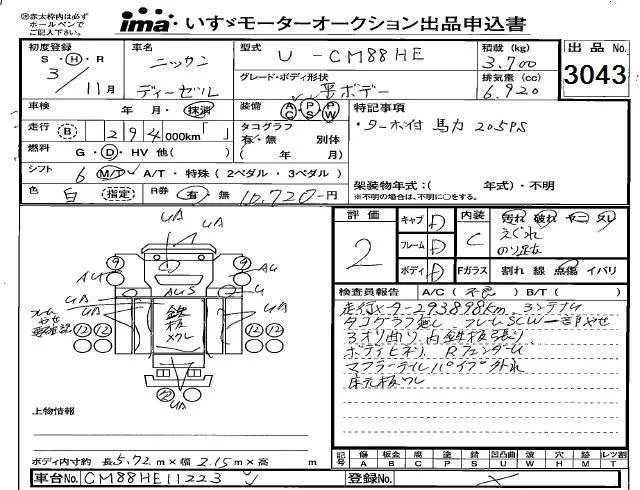 ※赤太枠内は必ず
ボールペンで
ご記入下さい。
ima いすゞモーターオークション出品申込書
初度登録
S・H・R
3/11月
車名
ニッサン
ディーゼル
型式
U-CM88HE
グレード・ボディ形状
平ボデー
積載(kg)
3,700
排気量(cc)
6,920
出品No.
3043
車検
年・月・抹消
装備
AC PS PW
特記事項
・ターボ付 馬力 205PS
走行
B 294000km「 」
タコグラフ
有・無 別体
( 年 月)
燃料
G・D・HV 他( )
シフト
6 M/T・A/T・特殊(2ペダル・3ペダル)
色
白 指定
R券
有・無 10,720-円
架装物年式:( 年式)・不明
※不明の場合は、不明に○をする。
評価
2
キャブ D
フレーム D
ボディ D
内装
C
汚れ 破れ
えぐれ
Fガラス
割れ 線 点傷 イバリ
検査員報告
A/C(不良) B/T( )
走行メーター293898km
タコグラフ無し フレームSCW一部ヤセ
3オリ曲り 内鉄板張り
RフェンダーU
マフラーテイルパイプ外れ
UA
UA
AU
AU
AUS
U
UA
UA
UA
フレーム
ヤセ
要確認
鉄
板
9
9
12
12
12
12
12
上物情報
ボディ内寸約 長5.72m×幅2.15m×高 m
記号
傷 A
板金 B
腐 C
塗 P
錆 S
凹凸曲 U
波 W
穴 H
跡 M
レツ割 T
車台No.
CM88HE11223
登録No.